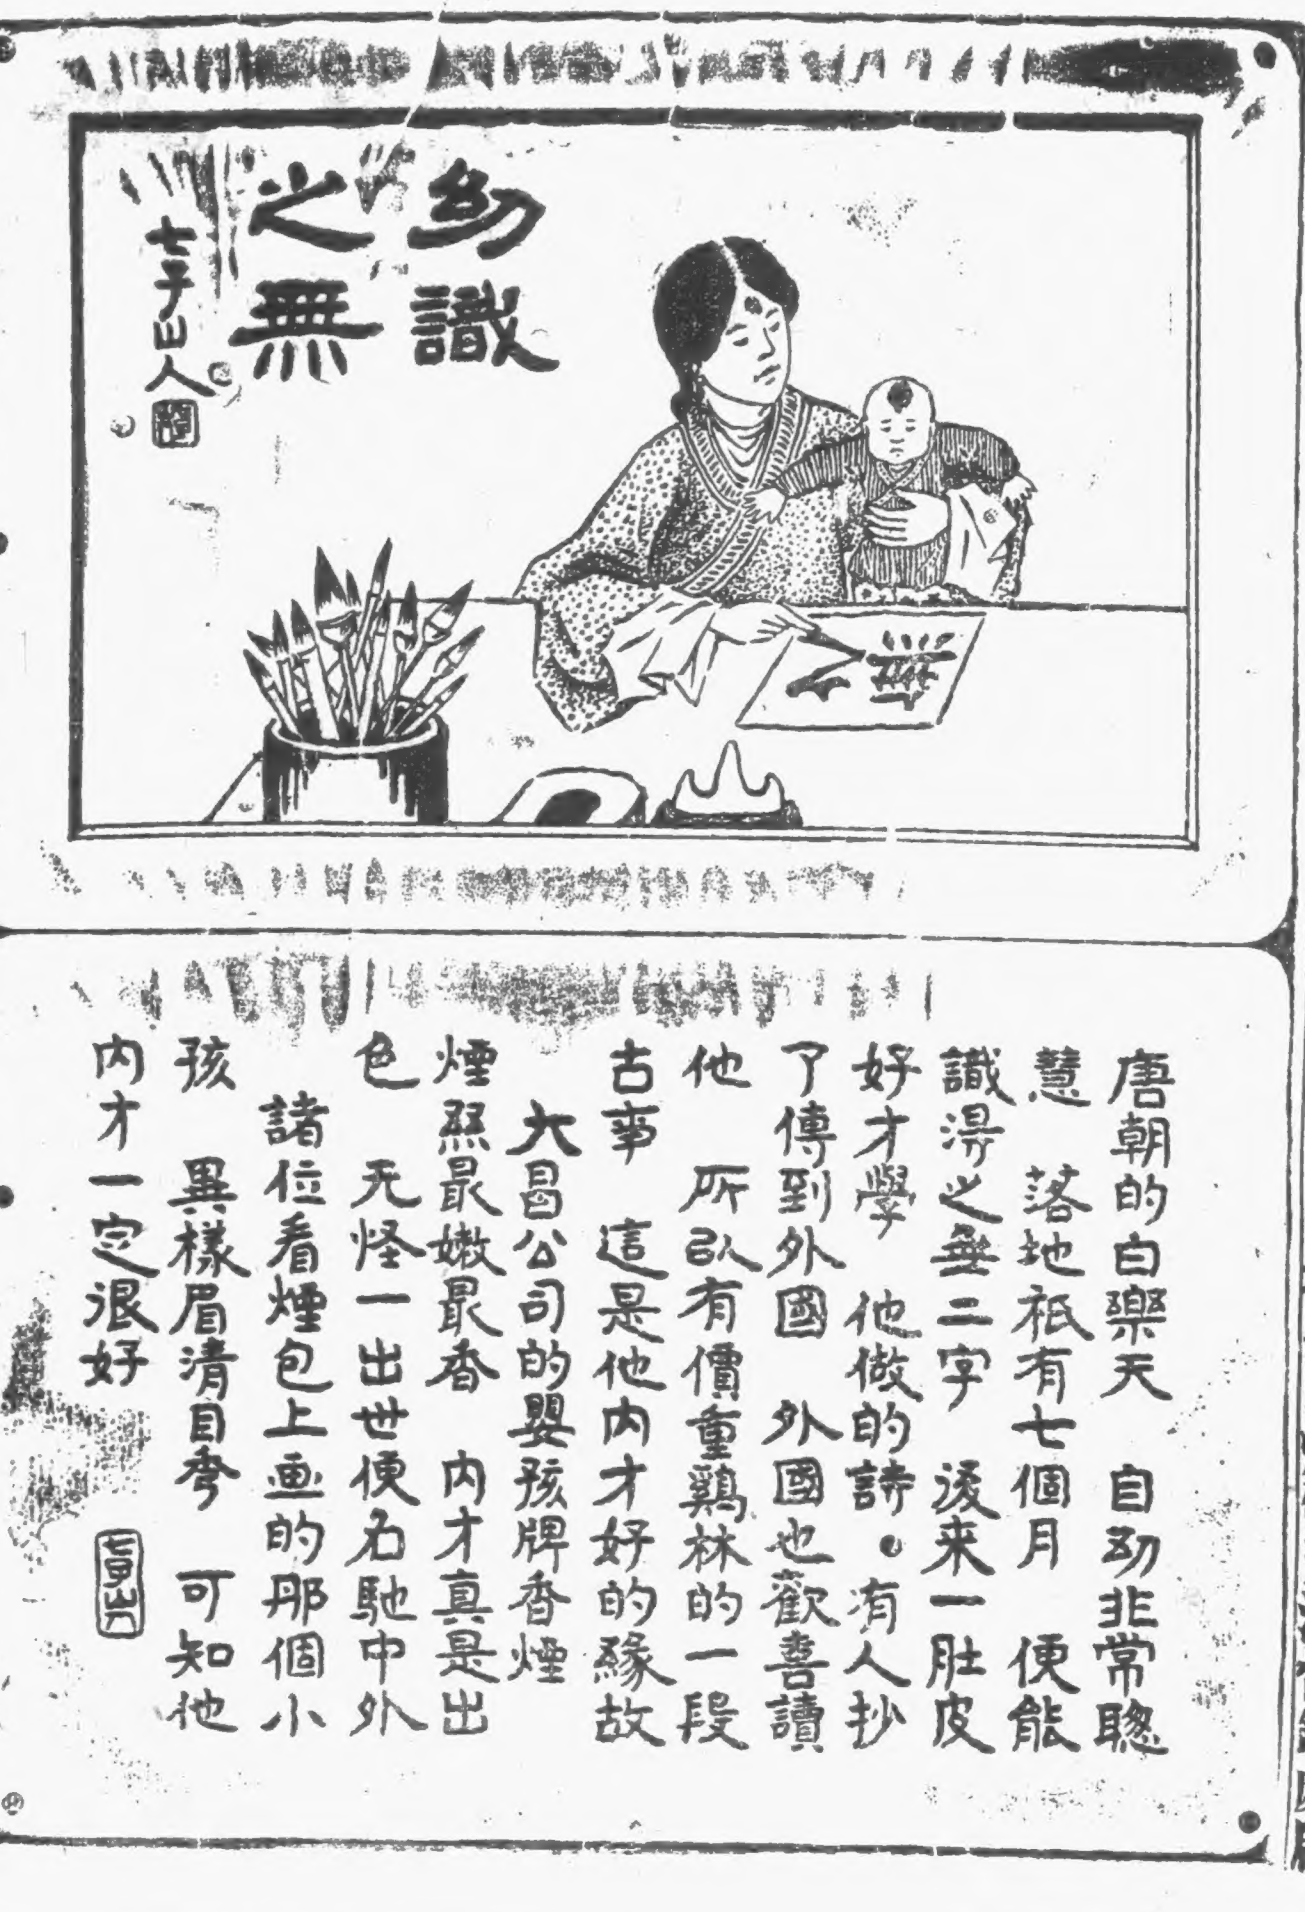 幼識
之無
七子山人
之無
唐朝的白樂天　自幼非常聰
慧　落地祇有七個月　便能
識淂之無二字　後来一肚皮
好才學　他做的詩．有人抄
了傳到外國　外國也歡喜讀
他　所㕥有價重鷄林的一段
古事　這是他内才好的緣故
大昌公司的嬰孩牌香煙
煙絲最嫩最香　内才真是出
色　无怪一出世便名馳中外
諸位看煙包上畫的那個小
孩　異樣眉清目秀　可知他
内才一定很好